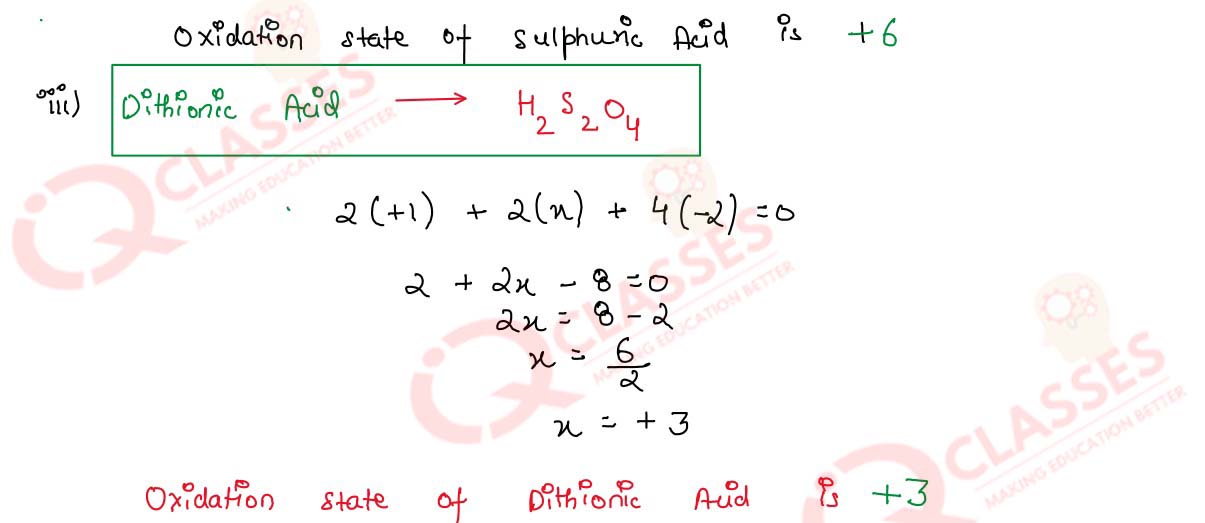 Oxidation state of Sulphuric Acid is +6
iii) Dithionic Acid ⟶ H₂S₂O₄
2(+1) + 2(x) + 4(-2) = 0
2 + 2x - 8 = 0
2x = 8 - 2
x = 6/2
x = + 3
Oxidation state of Dithionic Acid is +3
iQ CLASSES
MAKING EDUCATION BETTER
iQ CLASSES
MAKING EDUCATION BETTER
iQ CLASSES
MAKING EDUCATION BETTER